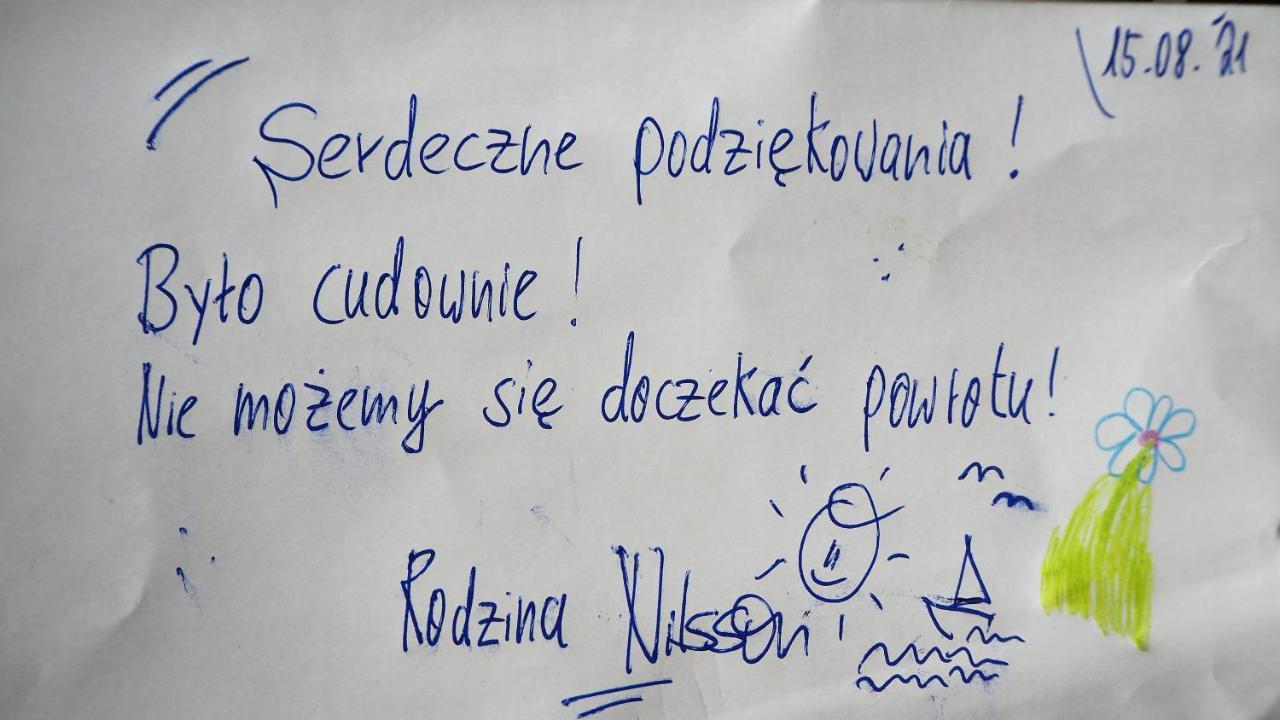 15.08.'21
Serdeczne podziękowania!
Było cudownie!
Nie możemy się doczekać powrotu!
Rodzina Nilsson